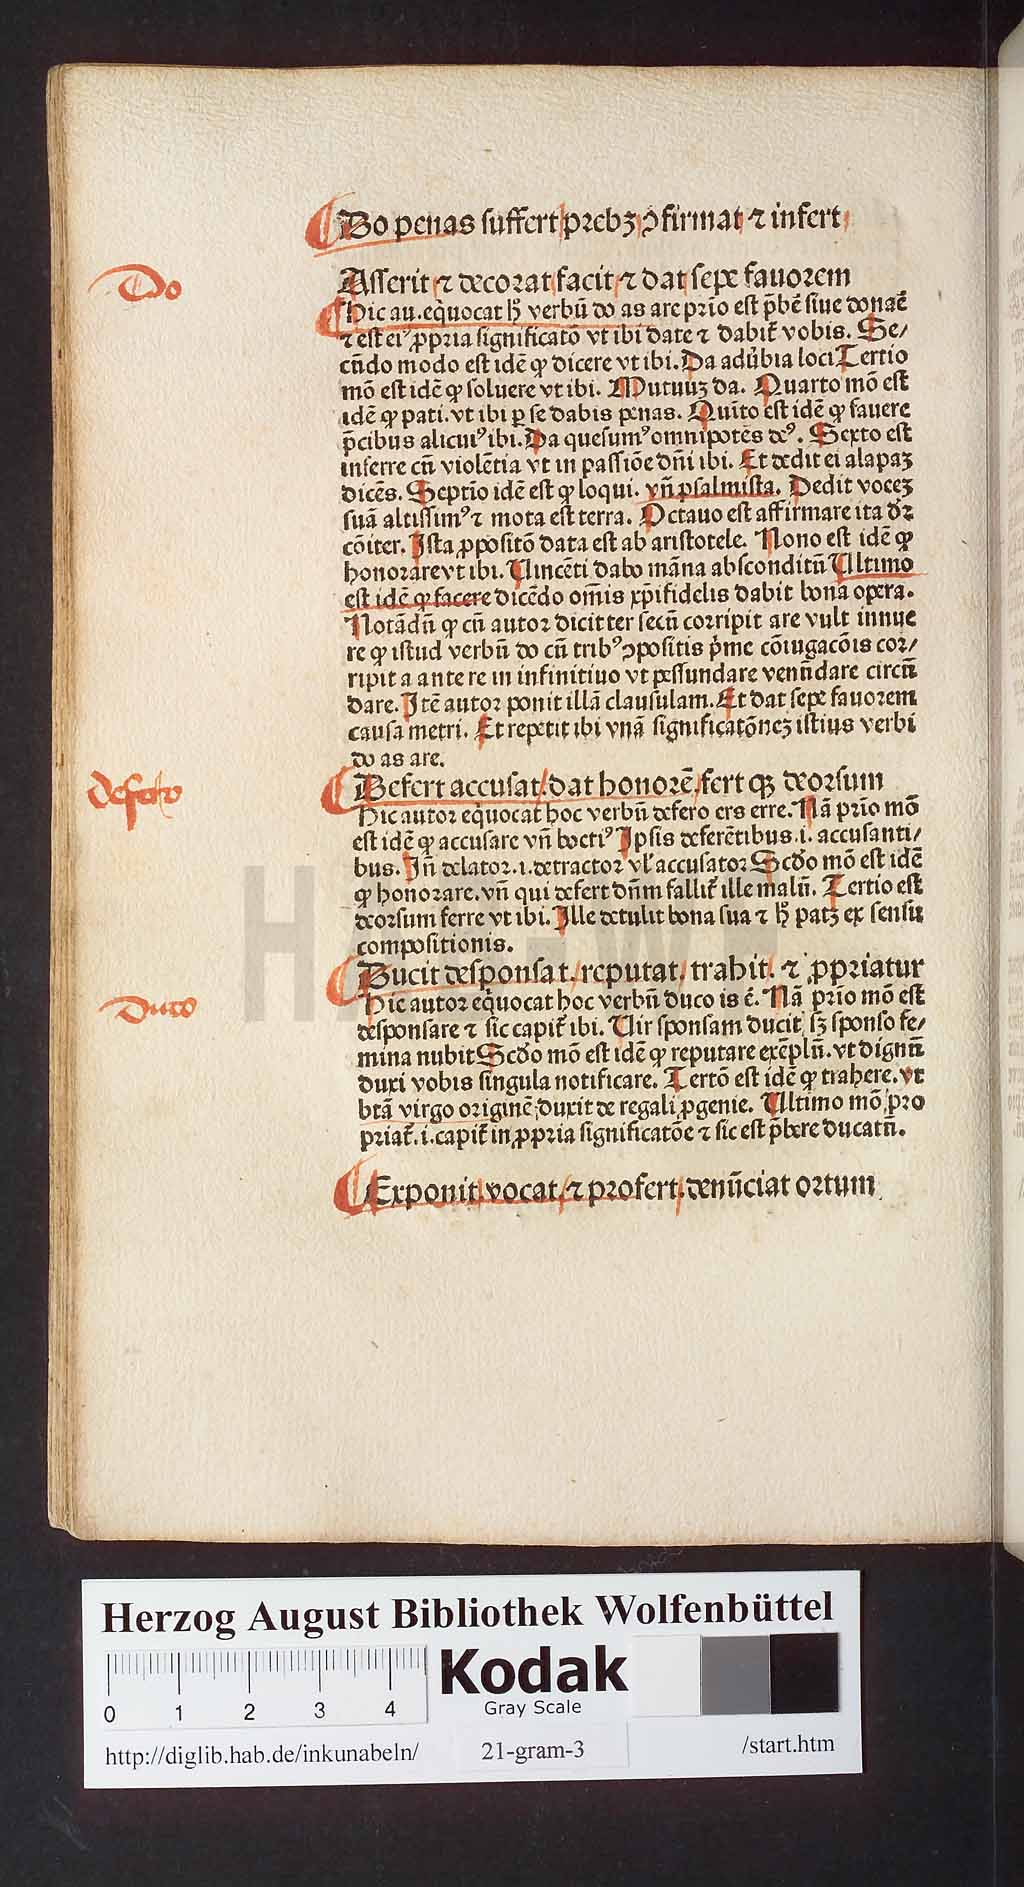 Do penas suffert prebꝫ ꝯfirmat ⁊ infert
Do
Asserit ⁊ decorat facit ⁊ dat sepe fauorem
Hic au. eq̇uocat hͦ verbū do as are prīo est p̄bē siue donaē
⁊ est eiꝰ ꝓpria significatō vt ibi date ⁊ dabit̃ vobis. Se/
cūdo modo est idē ꝙ dicere vt ibi. Da adūbia loci Tertio
mō est idē ꝙ soluere vt ibi. Mutuuꝫ da. Quarto mō est
idē ꝙ pati. vt ibi ꝑ se dabis penas. Quīto est idē ꝙ fauere
p̄cibus alicuiꝰ ibi. Da quesumꝰ omnipotēs deꝰ. Sexto est
inferre cū violētia vt in passiōe dn̄i ibi. Et dedit ei alapaꝫ
dicēs. Septīo idē est ꝙ loqui. vn̄ psalmista. Dedit voceꝫ
suā altissimꝰ ⁊ mota est terra. Octauo est affirmare ita dr̄
cōiter. Ista ꝓpositō data est ab aristotele. Nono est idē ꝙ
honorare vt ibi. Uincēti dabo māna absconditū Ultimo
est idē ꝙ facere dicēdo om̄is xp̄ifidelis dabit bona opera.
Notādū ꝙ cū autor dicit ter secū corripit are vult innue
re ꝙ istud verbū do cū tribꝰ ꝯpositis p̄me cōiugacōis cor/
ripit a ante re in infinitiuo vt pessundare venūdare circū
dare. Itē autor ponit illā clausulam. Et dat sepe fauorem
causa metri. Et repetit ibi vnā significatōneꝫ istius verbi
do as are.
defero
Defert accusat/ dat honorē/ fert qꝫ deorsum
Hic autor eq̇uocat hoc verbū defero ers erre. Nā prīo mō
est idē ꝙ accusare vn̄ boetiꝰ Ipsis deferētibus .i. accusanti/
bus. Īn̄ delator .i. detractor vl̓ accusator Scd̓o mō est idē
ꝙ honorare. vn̄ qui defert dn̄m fallit̃ ille malū. Tertio est
deorsum ferre vt ibi. Ille detulit bona sua ⁊ hͦ patꝫ ex sensu
compositionis.
Ducit desponsat/ reputat/ trahit/ ⁊ ꝓpriatur
Duco
Hic autor eq̇uocat hoc verbū duco is ē. Nā prīo mō est
desponsare ⁊ sic capit̃ ibi. Uir sponsam ducit sꝫ sponso fe/
mina nubit Scd̓o mō est idē ꝙ reputare exēplū. vt dignū
duxi vobis singula notificare. Tertō est idē ꝙ trahere. vt
btā virgo originē duxit de regali ꝓgenie. Ultimo mō pro
priat̃ .i. capit̃ in ꝓpria significatōe ⁊ sic est p̄bere ducatū.
Exponit vocat/ ⁊ profert/ denūciat ortum
HAB-WF
Herzog August Bibliothek Wolfenbüttel
0 1 2 3 4
Kodak
Gray Scale
http://diglib.hab.de/inkunabeln/
21-gram-3
/start.htm